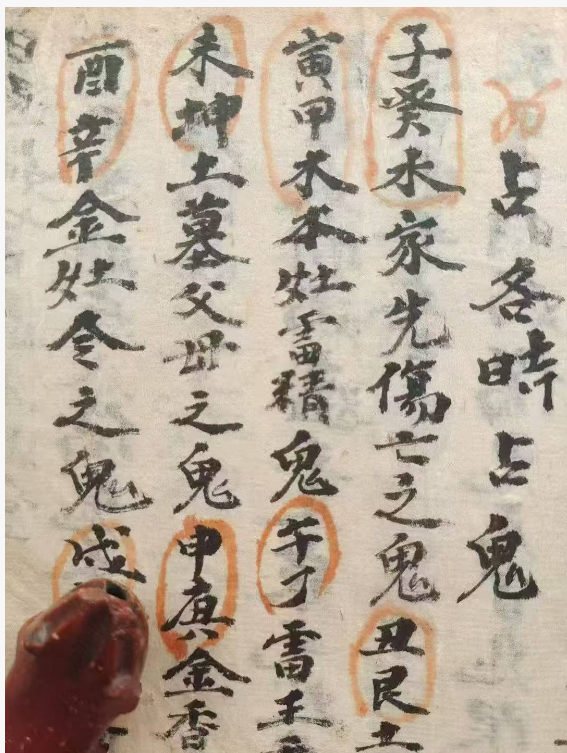 占各時占鬼
子癸水家先傷亡之鬼丑艮土
寅甲木木灶雷精鬼午丁雷王
未坤土墓父母之鬼申庚金香
酉辛金灶令之鬼戌